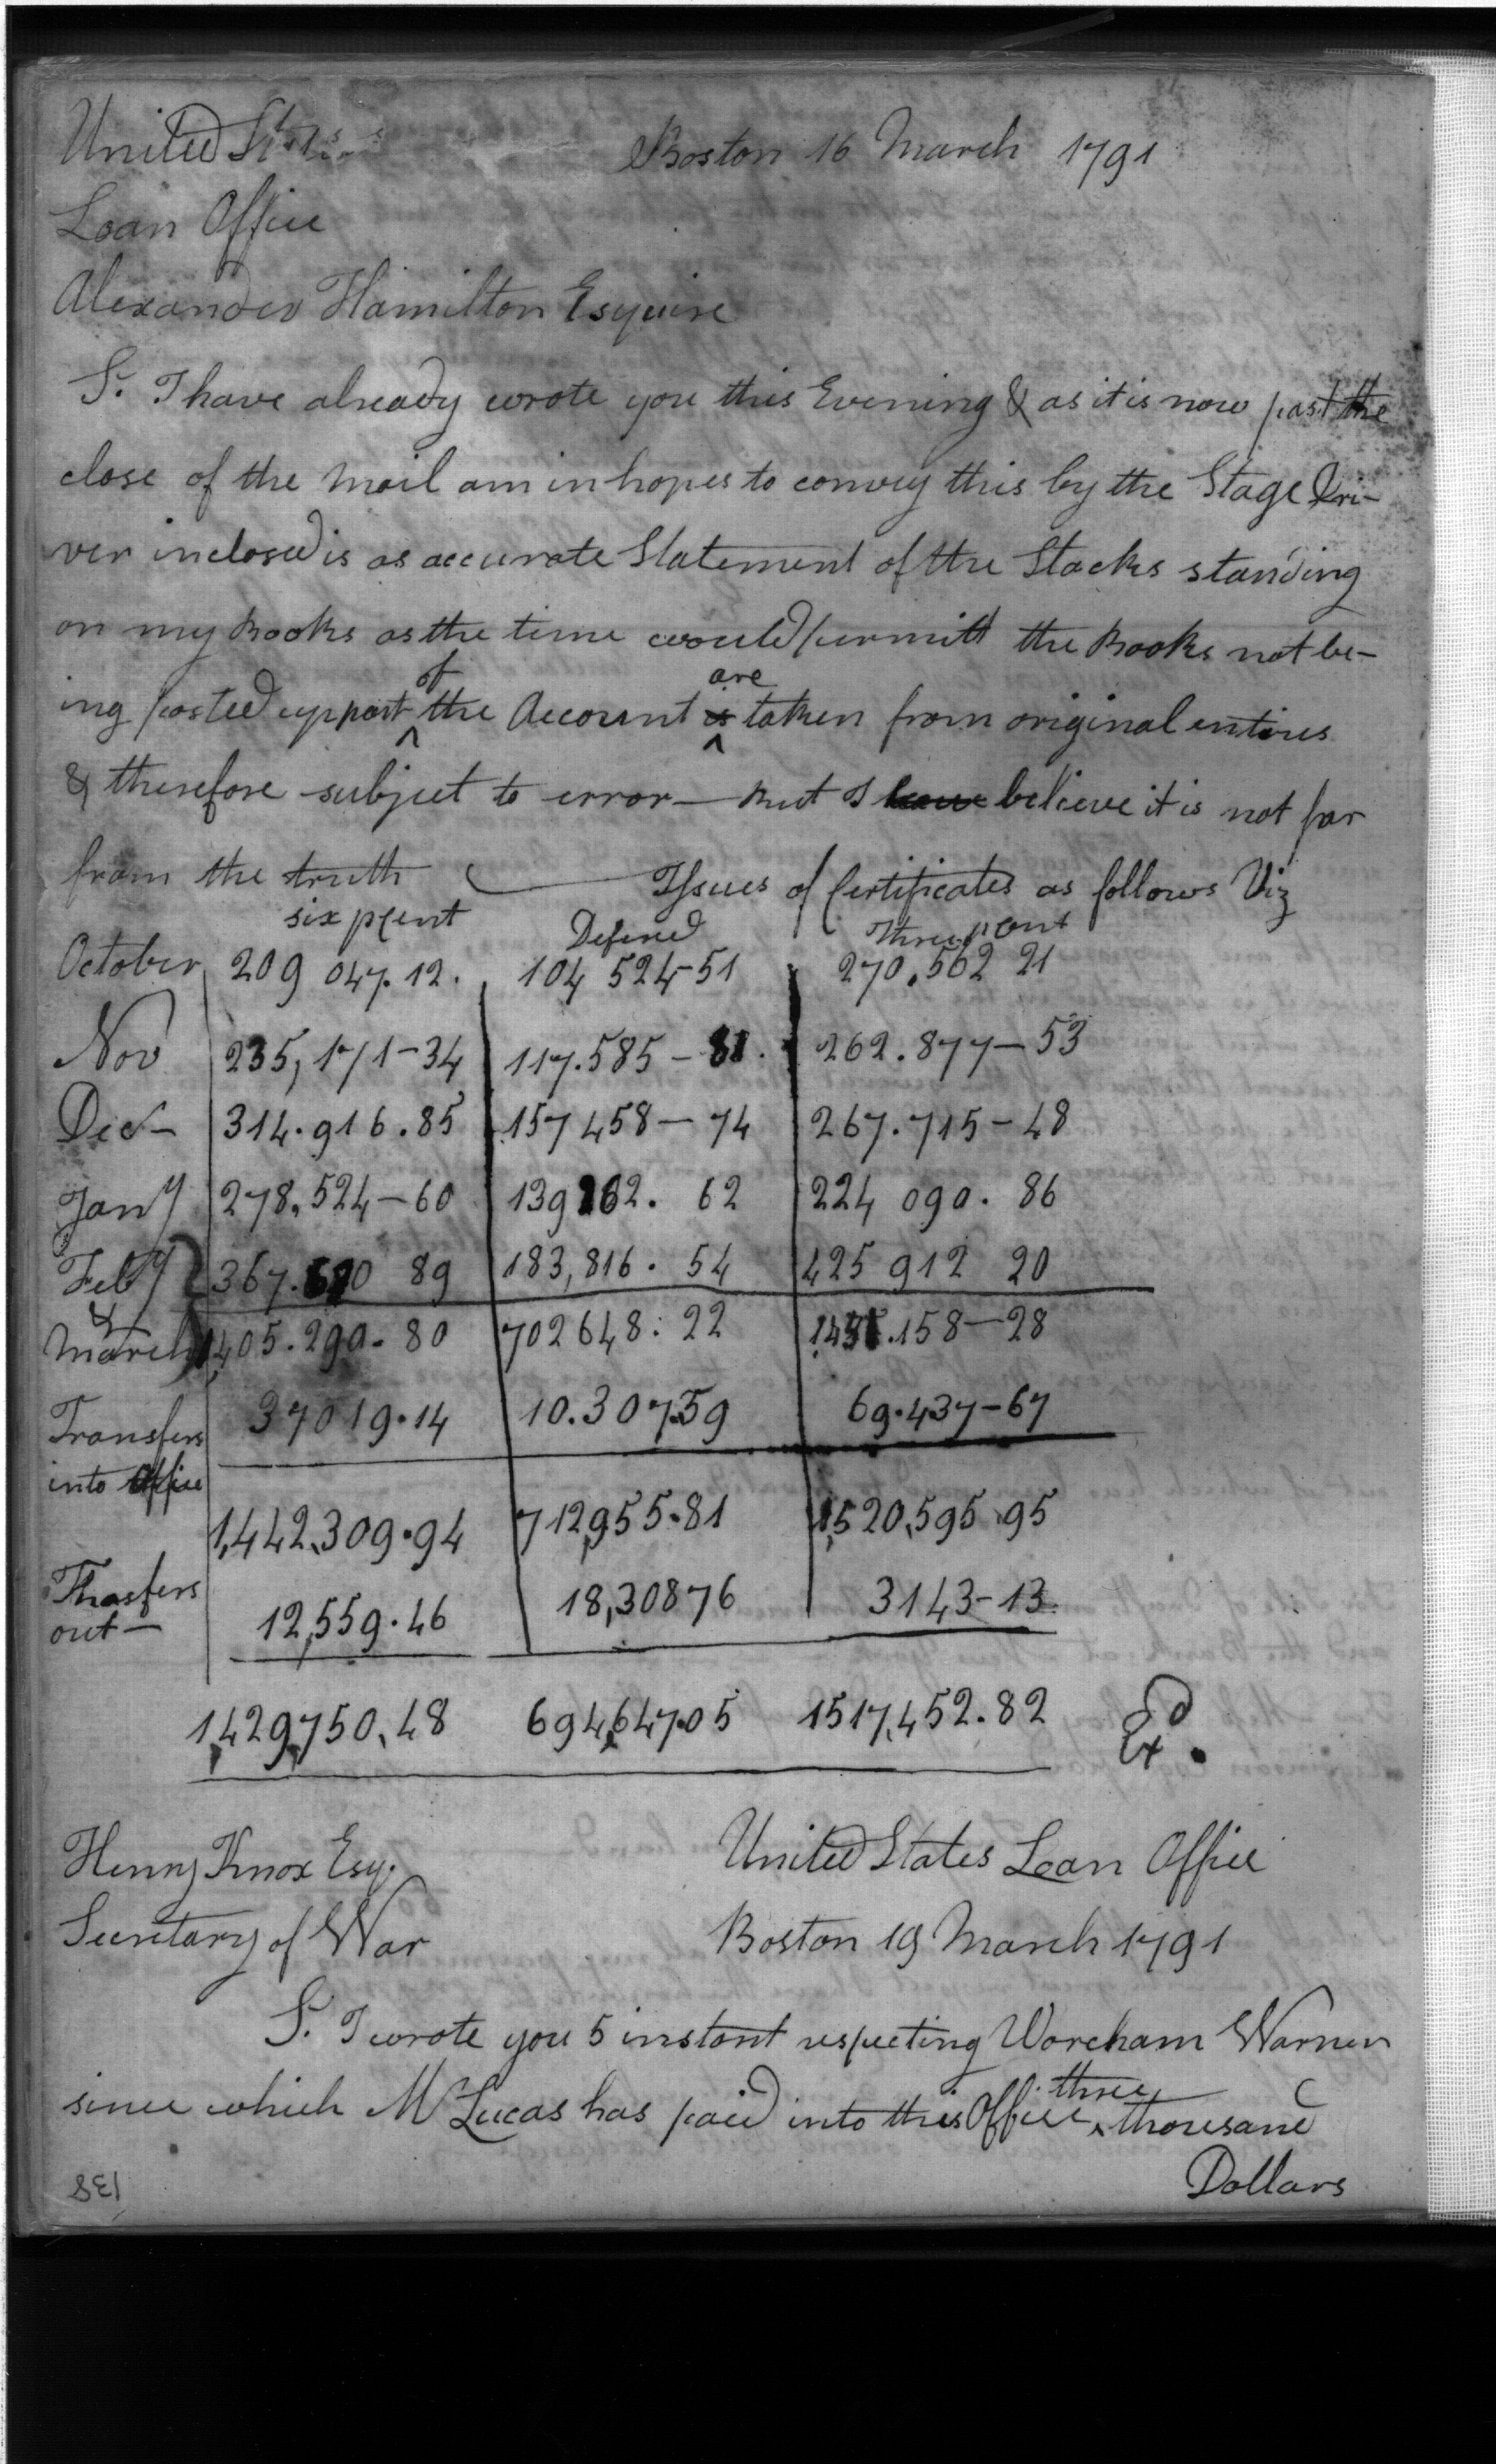 United States Boston 16 March 1791
Loan Office
Alexander Hamilton Esquire
S. I have already wrote you this Evening & as it is now past the
close of the mail am in hopes to convey this by the Stage Dri-
ver inclosed is as accurate Statement of the Stocks standing
on my Books as the time would permitt the Books not be-
ing posted up part of the Account is are taken from original entires
& therefore subject to error — but I believe it is not far
from the truth — Issues of Certificates as follows Viz
six pcent Defered Three pcent
October 209 047.12. 104 524-51 270.562 21
Nov 235,171-34 117.585-81. 262.877-53
Dec- 314.916.85 157 458-74 267.715-48
Jany 278,524-60 139262. 62 224 090. 86
Feby 367.630 89 183,816. 54 425 912 20
&
March 1405.290.80 702648:22 1451.158-28
Transfers 37019.14 10.307.59 69.437-67
into Office
1,442,309.94 712,955.81 1,520,595.95
Thasfers
out- 12,559.46 18,30876 3143-13.
1,429,750.48 694,647.05 1517,452.82 Exd.
Henry Knox Esq. United States Loan Office
Secretary of War Boston 19 March 1791
S. I wrote you 5 instant respecting Woreham Warner
since which Mr Lucas has paid into this Office three thousand
Dollars
138